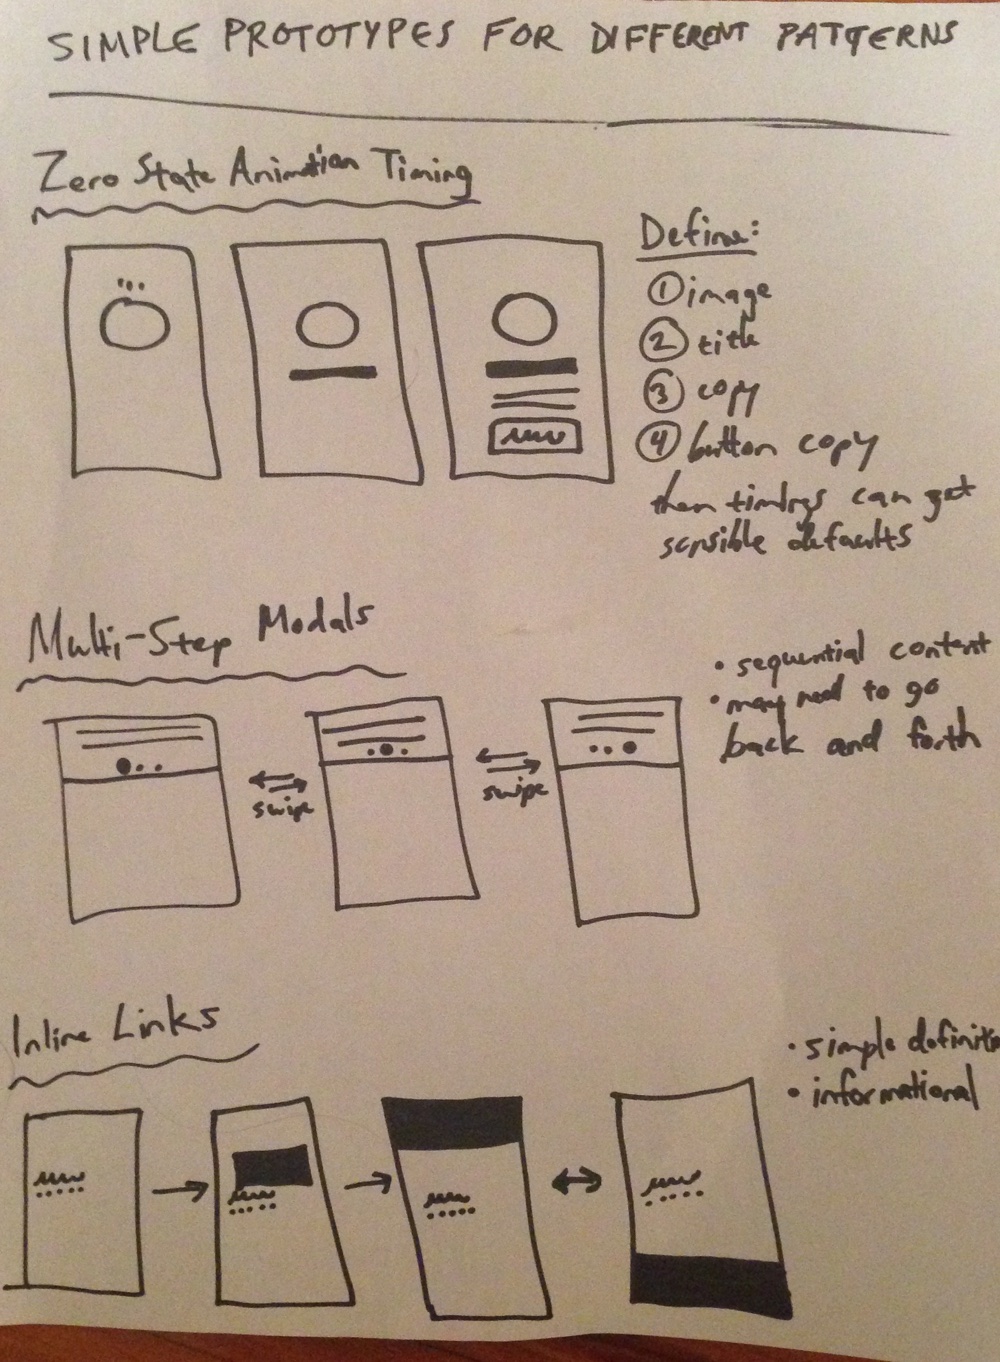 SIMPLE PROTOTYPES FOR DIFFERENT PATTERNS
Zero State Animation Timing
Define:
① image
② title
③ copy
④ button copy
then timings can get
sensible defaults
Multi-Step Modals
• sequential content
• may need to go
back and forth
swipe
swipe
Inline Links
• simple definiti
• informational